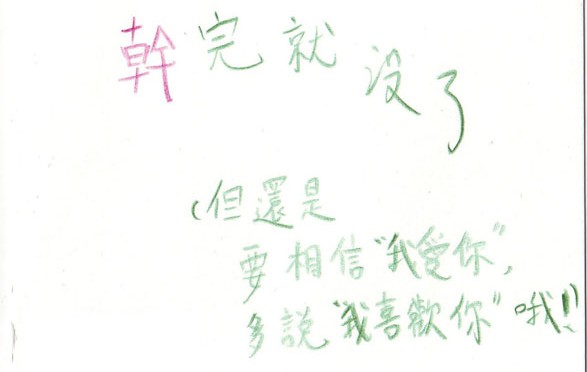 幹完就没了
(但還是
要相信"我愛你",
多說"我喜歡你"哦!!